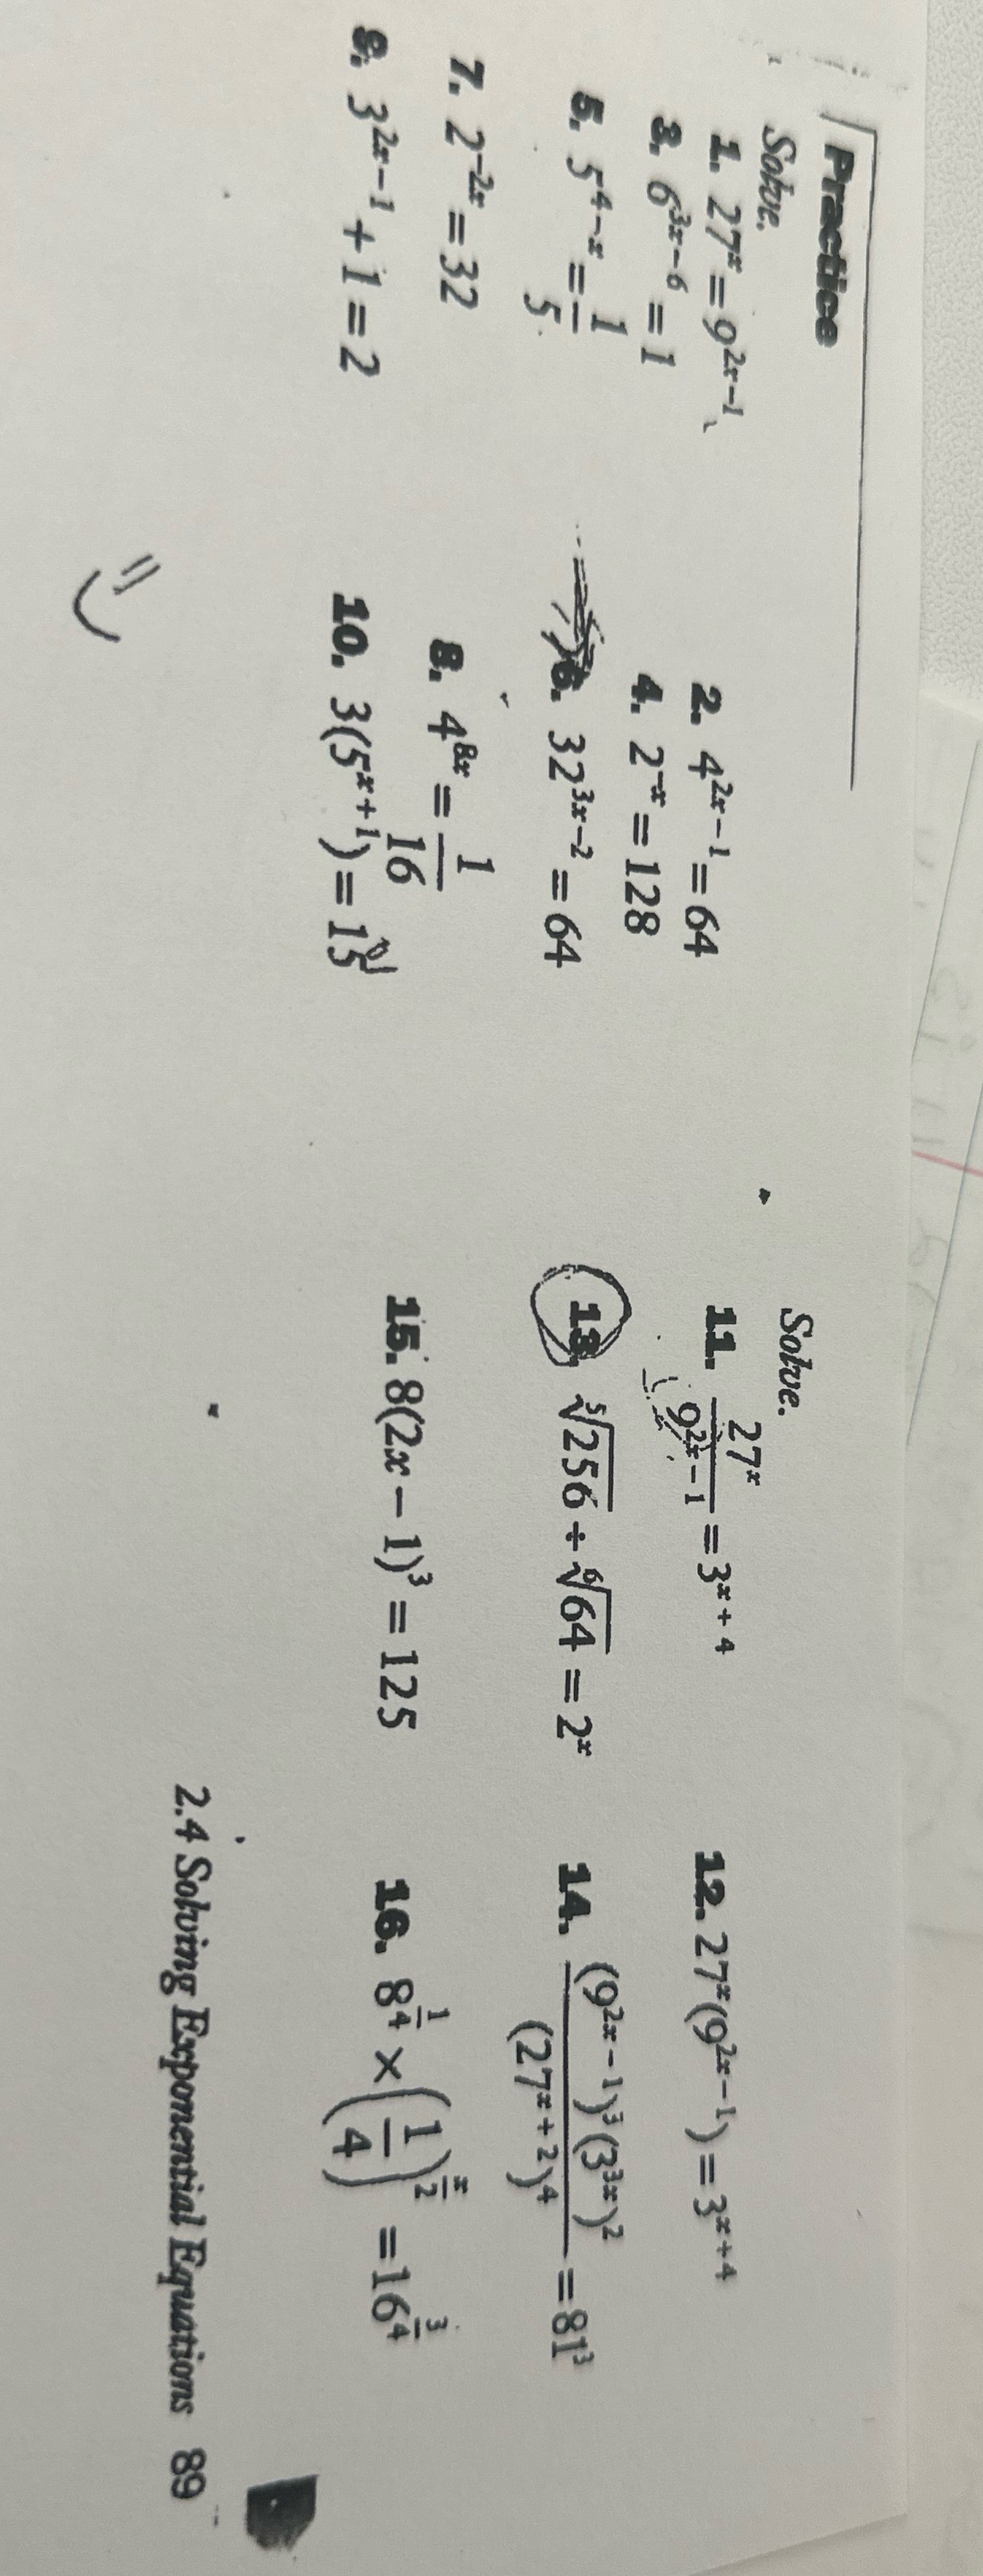 Practice
Solve.
1. 27^x = 9^{2x-1}
2. 4^{2x-1} = 64
3. 6^{3x-6} = 1
4. 2^{-x} = 128
5. 5^{4-x} = \frac{1}{5}
6. 32^{3x-2} = 64
7. 2^{-2x} = 32
8. 4^{8x} = \frac{1}{16}
9. 3^{2x-1} + 1 = 2
10. 3(5^{x+1}) = 15
Solve.
11. \frac{27^x}{9^{2x-1}} = 3^{x+4}
12. 27^x(9^{2x-1}) = 3^{x+4}
13. \sqrt[5]{256} ÷ \sqrt[6]{64} = 2^x
14. \frac{(9^{2x-1})^3(3^{3x})^2}{(27^{x+2})^4} = 81^3
15. 8(2x - 1)^3 = 125
16. 8^{\frac{1}{4}} × \left(\frac{1}{4}\right)^{\frac{x}{2}} = 16^{\frac{3}{4}}
2.4 Solving Exponential Equations 89